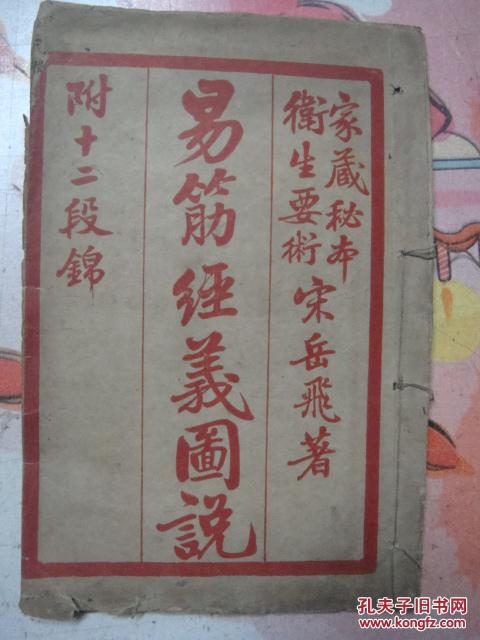 家藏秘本
衛生要術
宋岳飛著
易筋經義圖說
附十二段錦
孔夫子旧书网
www.kongfz.com